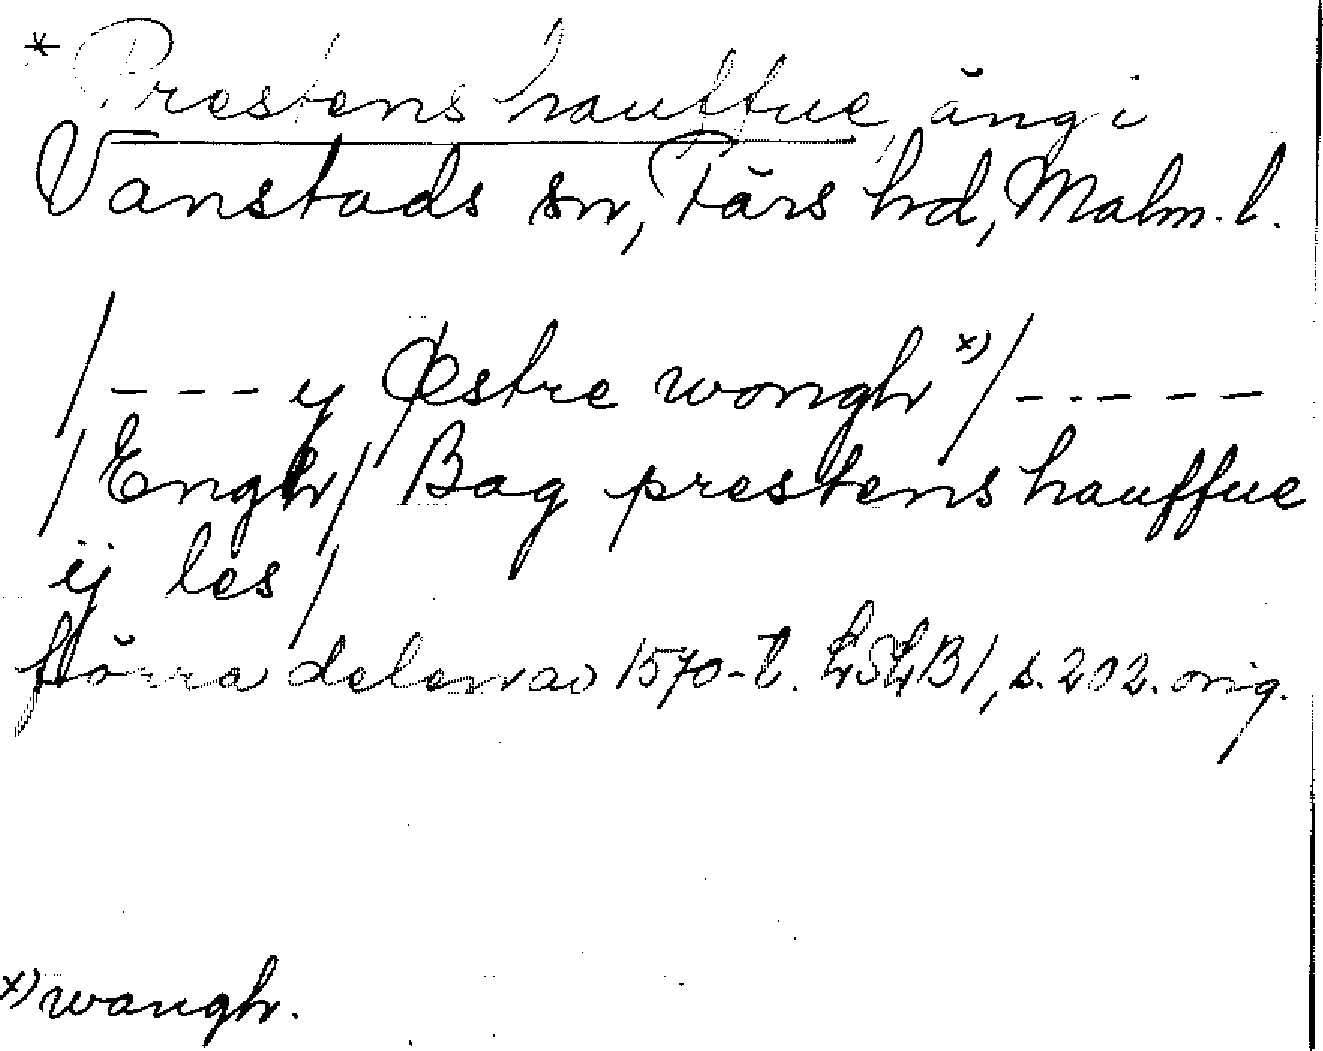 * Prestens hauffue, äng i
Vanstads sn, Färs hd, Malm. l.
/ - - - y Østre wongh x) / - - - - -
/Engh/ Bag prestens hauffue
ij les /
förra delen av 1570-t. LSLB1, s. 202. orig.
x) wangh.